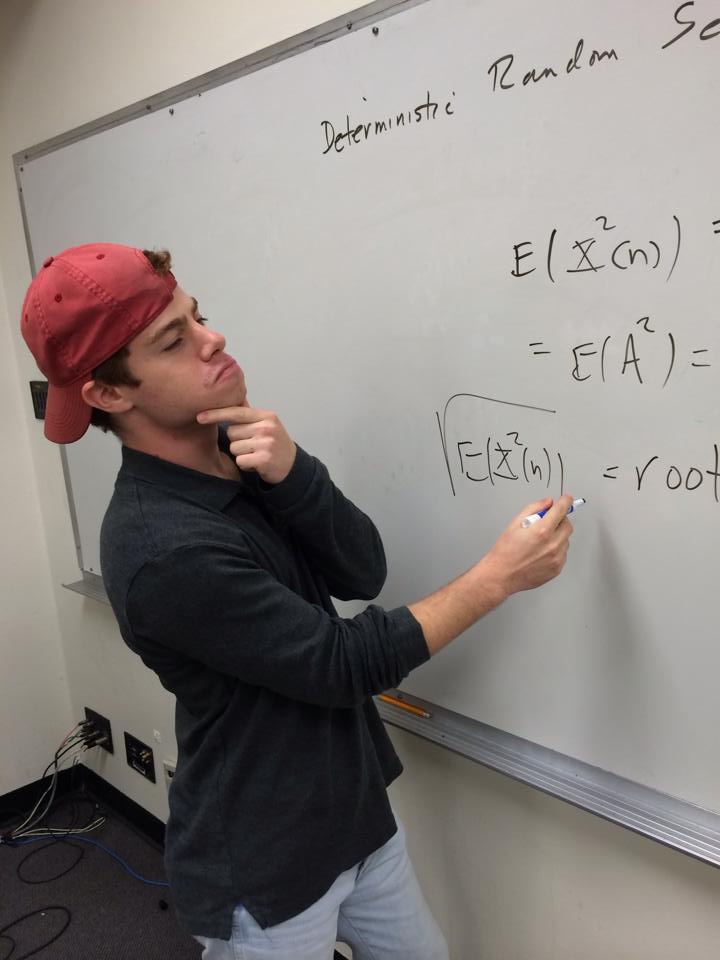 Deterministic Random Se
E(X²(n)) =
= E(A²) =
√E(X²(n)) = root